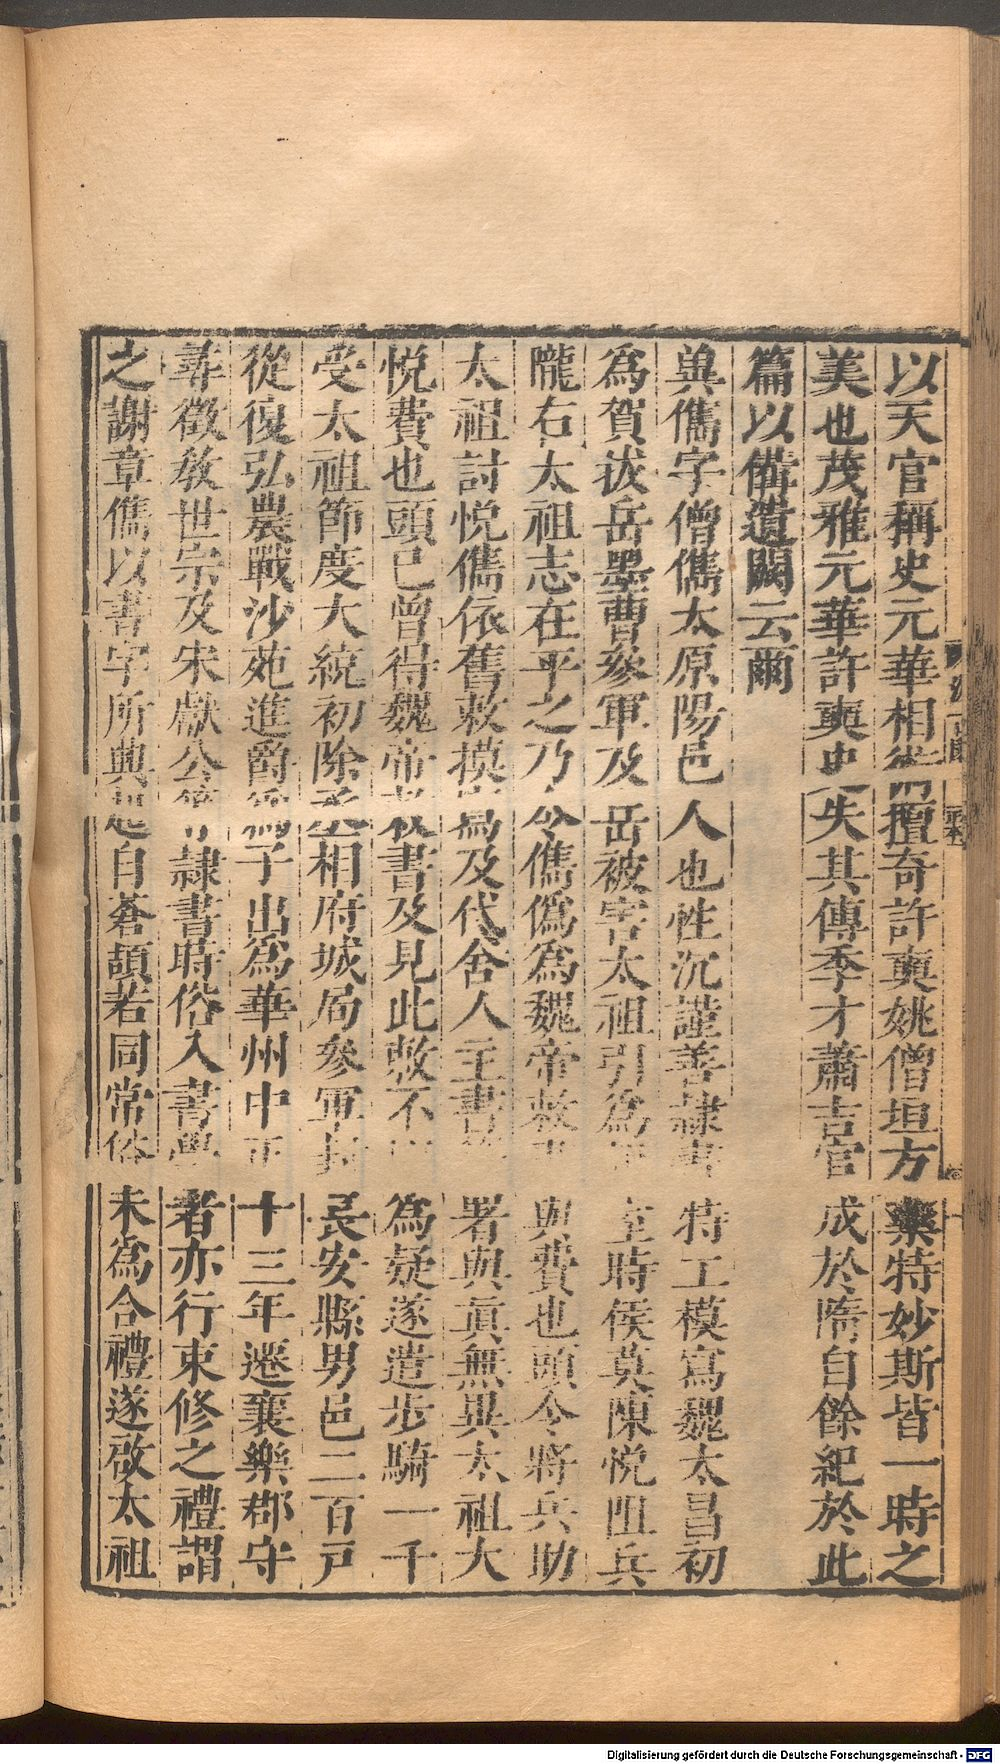 以天官稱史元華相術擅奇許奭姚僧垣方藥特妙斯皆一時之
美也茂雅元華許奭史失其傳季才蕭吉官成於隋自餘紀於此
篇以備遺闕云爾
兾儁字僧儁太原陽邑人也性沉謹善隷書特工模寫魏太昌初
為賀拔岳墨曹參軍及岳被害太祖引為記室時侯莫陳悅阻兵
隴右太祖志在平之乃令儁偽為魏帝敕書與費也頭令將兵助
太祖討悅儁依舊敕摸寫及代舍人主書等署與眞無異太祖大
悅費也頭已曾得魏帝敕書及見此敕不以為疑遂遣步騎一千
受太祖節度大統初除丞相府城局參軍封長安縣男邑二百戸
從復弘農戰沙苑進爵為子出為華州中正十三年遷襄樂郡守
尋徵敎世宗及宋獻公等隷書時俗入書學者亦行束修之禮謂
之謝章儁以書字所興起自蒼頡若同常俗未為合禮遂啟太祖
Digitalisierung gefördert durch die Deutsche Forschungsgemeinschaft - DFG